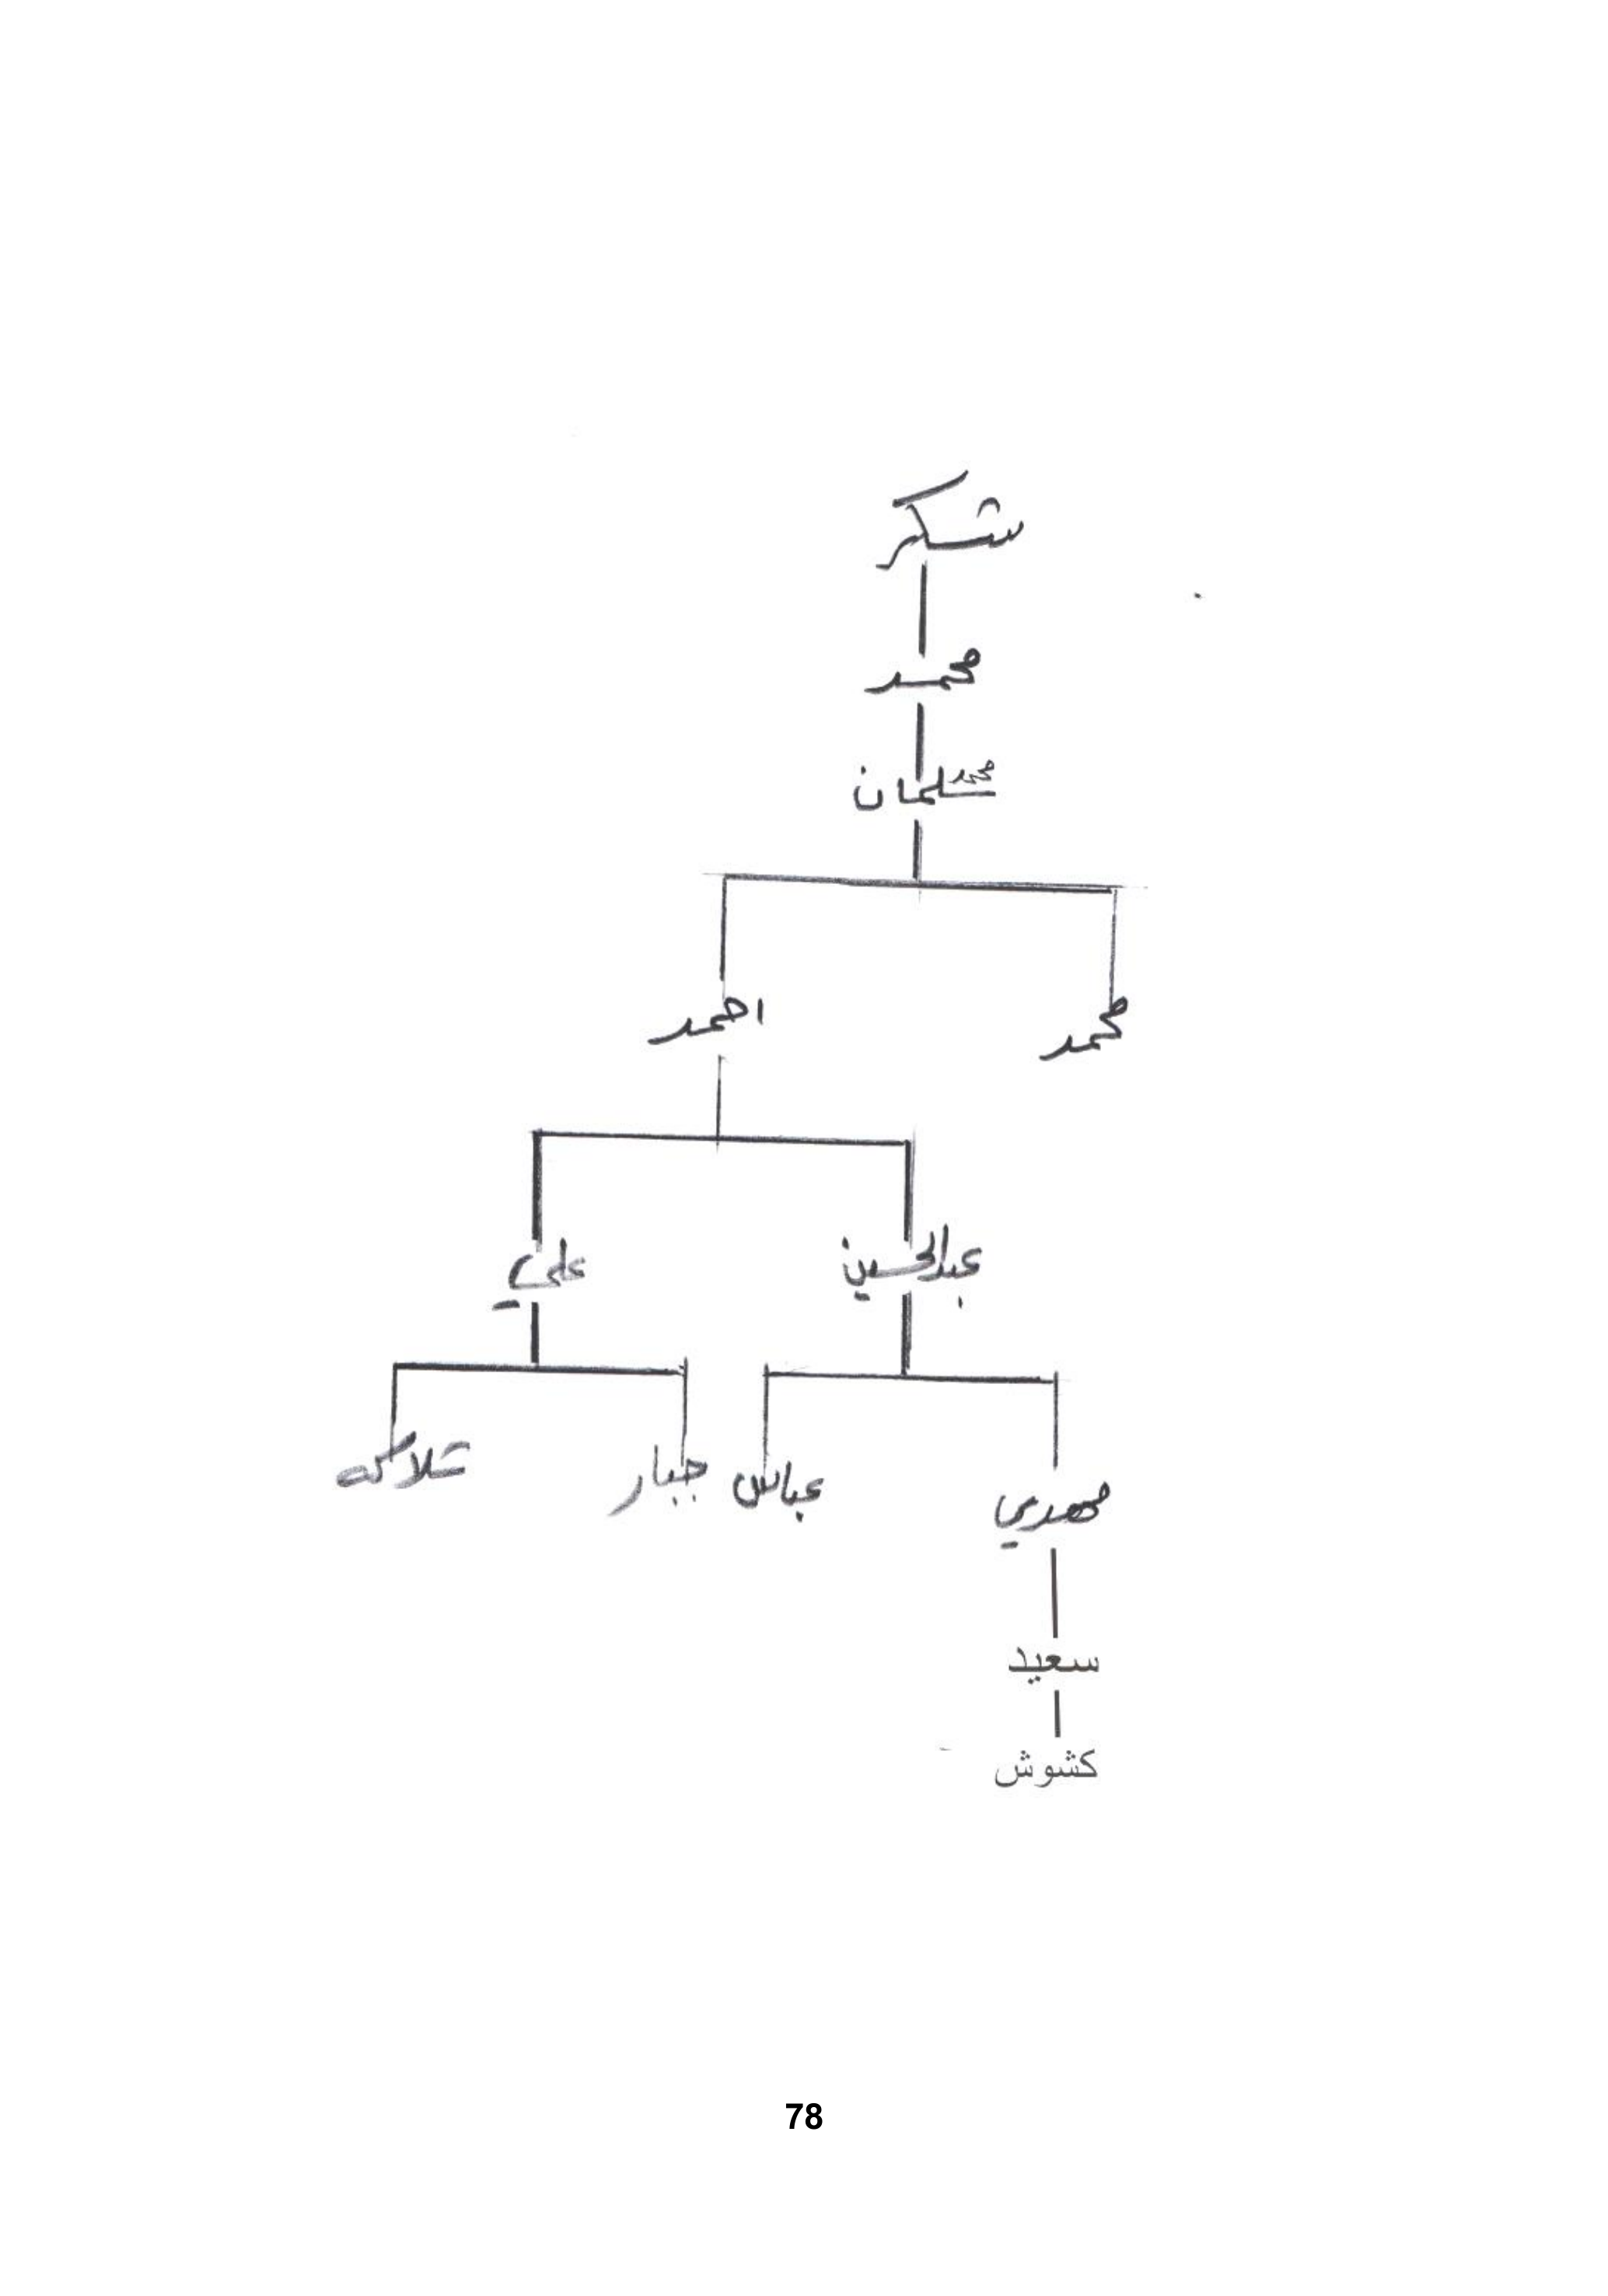 شكر
محمد
محمد سلمان
محمد احمد
عبدالحسين علي
مهدي عباس جبار شلاكه
سعيد
كشوش
78